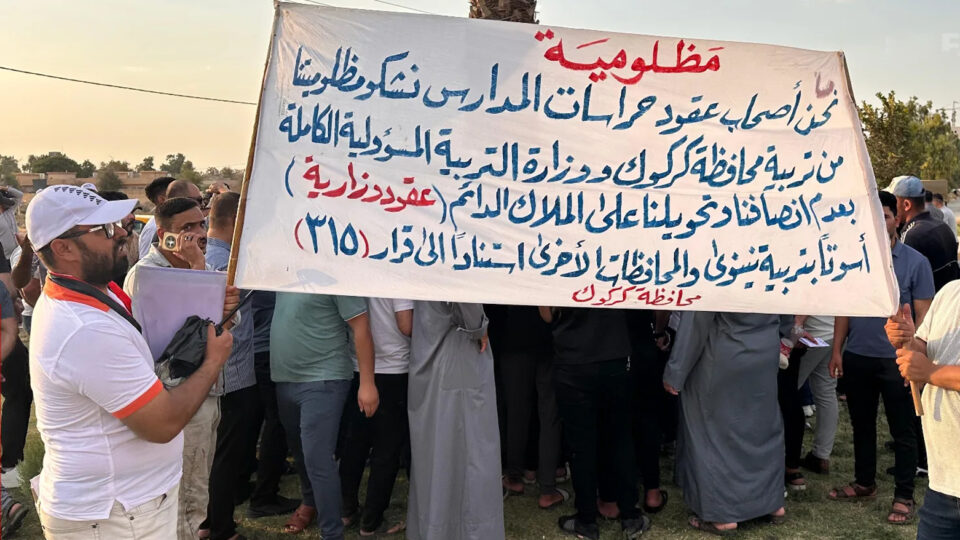 مَظلوميَة
نحن أصحاب عقود حراسات المدارس نشكو مظلوميتنا
من تربية محافظة كركوك ووزارة التربية المسؤولية الكاملة
بعدم انصافنا وتحويلنا على الملاك الدائم (عقود وزارية)
أسوتاً بتربية نينوى والمحافظات الأخرى استناداً الى قرار (٣١٥)
محافظة كركوك